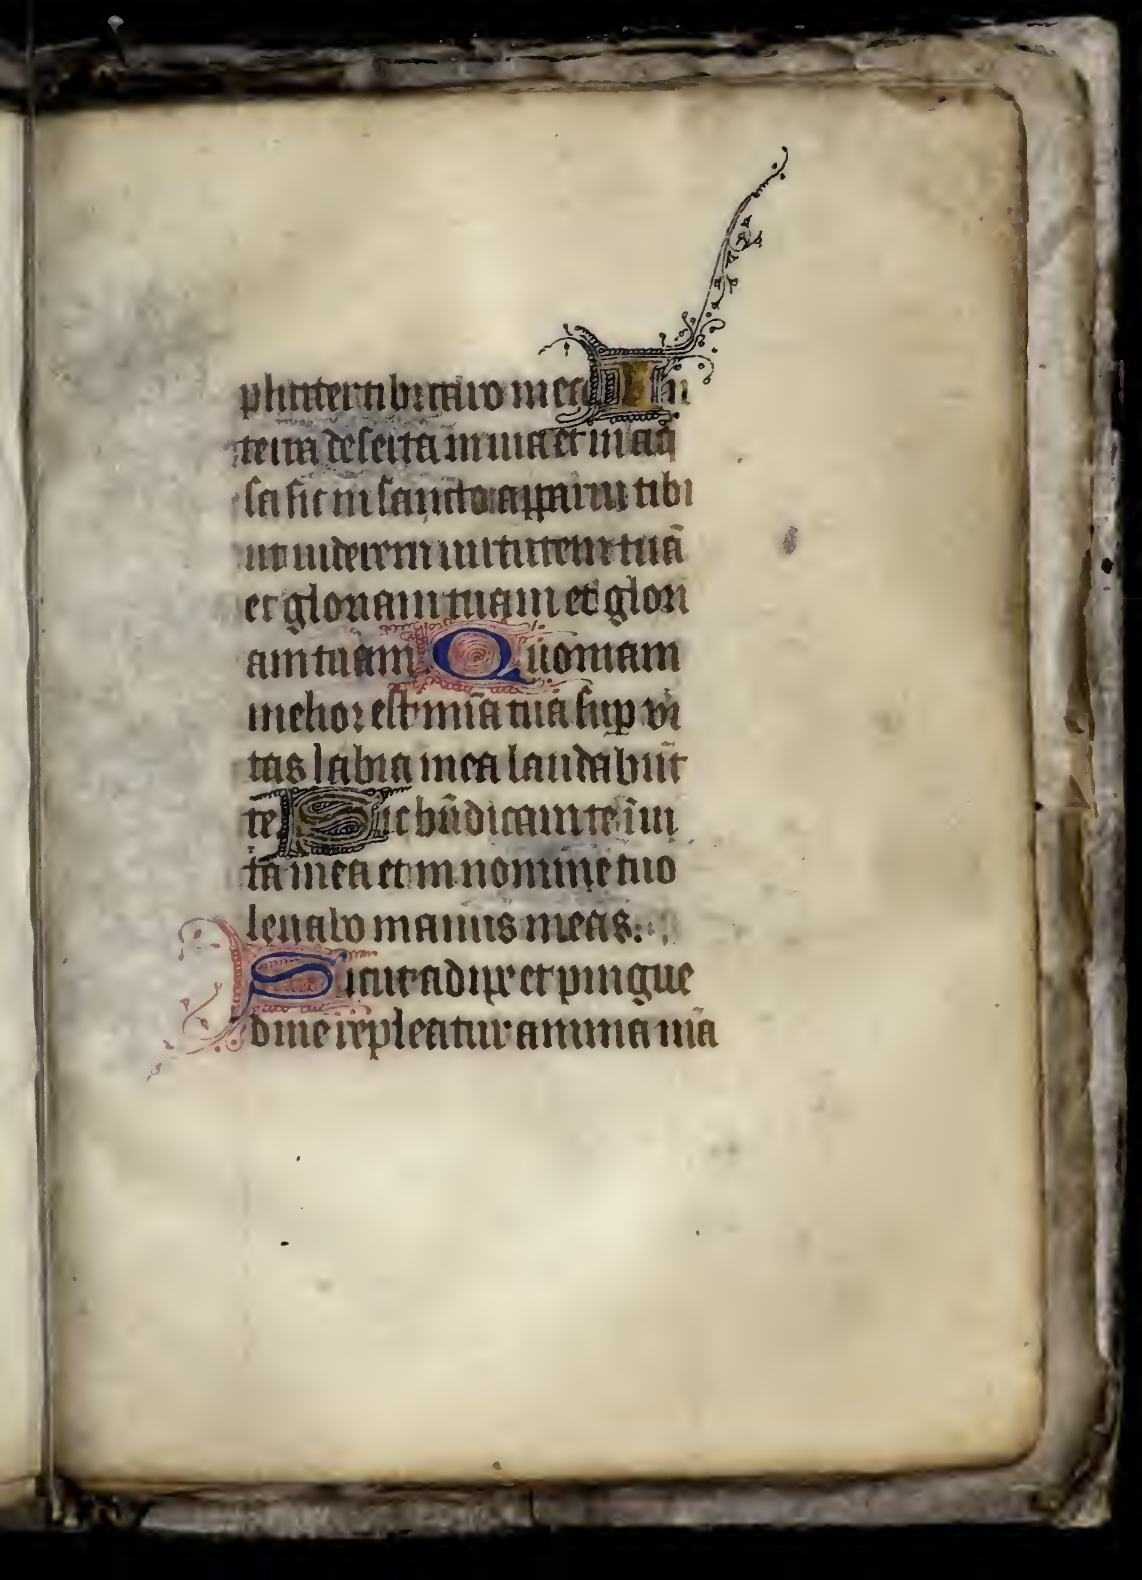 pliciter tibi caro mea In
terra deserta inuia et inaq
sa sic in sancto apparui tibi
ut uiderem uirtutem tuā
et gloriam tuam et glori
am tuam Quoniam
melior est mīa tua sup vi
tas labia mea laudabūt
te Sic bn̄dicam te ī ui
ta mea et in nomine tuo
leuabo manus meas.
Sicut adipe et pingue
dine repleatur anima mā